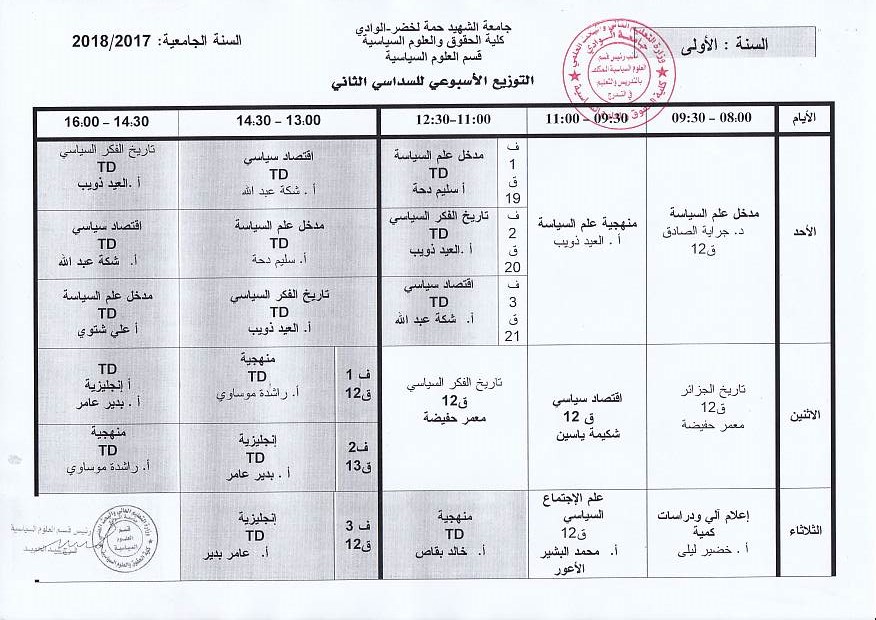 جامعة الشهيد حمة لخضر-الوادي
كلية الحقوق والعلوم السياسية
قسم العلوم السياسية
السنة : الأولى
السنة الجامعية: 2018/2017
التوزيع الأسبوعي للسداسي الثاني
الأيام
09:30 – 08:00
11:00 – 09:30
12:30-11:00
14:30 – 13:00
16:00 – 14:30
الأحد
مدخل علم السياسة
د. جراية الصادق
ق12
منهجية علم السياسة
أ . العيد ذويب
ف
1
ق
19
مدخل علم السياسة
TD
أ سليم دحة
اقتصاد سياسي
TD
أ . شكة عبد الله
تاريخ الفكر السياسي
TD
أ .العيد ذويب
ف
2
ق
20
تاريخ الفكر السياسي
TD
أ .العيد ذويب
مدخل علم السياسة
TD
أ. سليم دحة
اقتصاد سياسي
TD
أ. شكة عبد الله
ف
3
ق
21
اقتصاد سياسي
TD
أ. شكة عبد الله
تاريخ الفكر السياسي
TD
أ. العيد ذويب
مدخل علم السياسة
TD
أ علي شتوي
الاثنين
تاريخ الجزائر
ق12
معمر حفيضة
اقتصاد سياسي
ق 12
شكيمة ياسين
تاريخ الفكر السياسي
ق12
معمر حفيضة
ف 1
ق12
منهجية
TD
أ. راشدة موساوي
TD
أ إنجليزية
أ . بدير عامر
ف2
ق13
إنجليزية
TD
أ . بدير عامر
منهجية
TD
أ. راشدة موساوي
الثلاثاء
إعلام آلي ودراسات
كمية
أ . خضير ليلى
علم الإجتماع
السياسي
ق12
أ. محمد البشير
الأعور
منهجية
TD
أ. خالد بقاص
ف 3
ق12
إنجليزية
TD
أ. عامر بدير
رئيس قسم العلوم السياسية
قسم
العلوم
السياسية